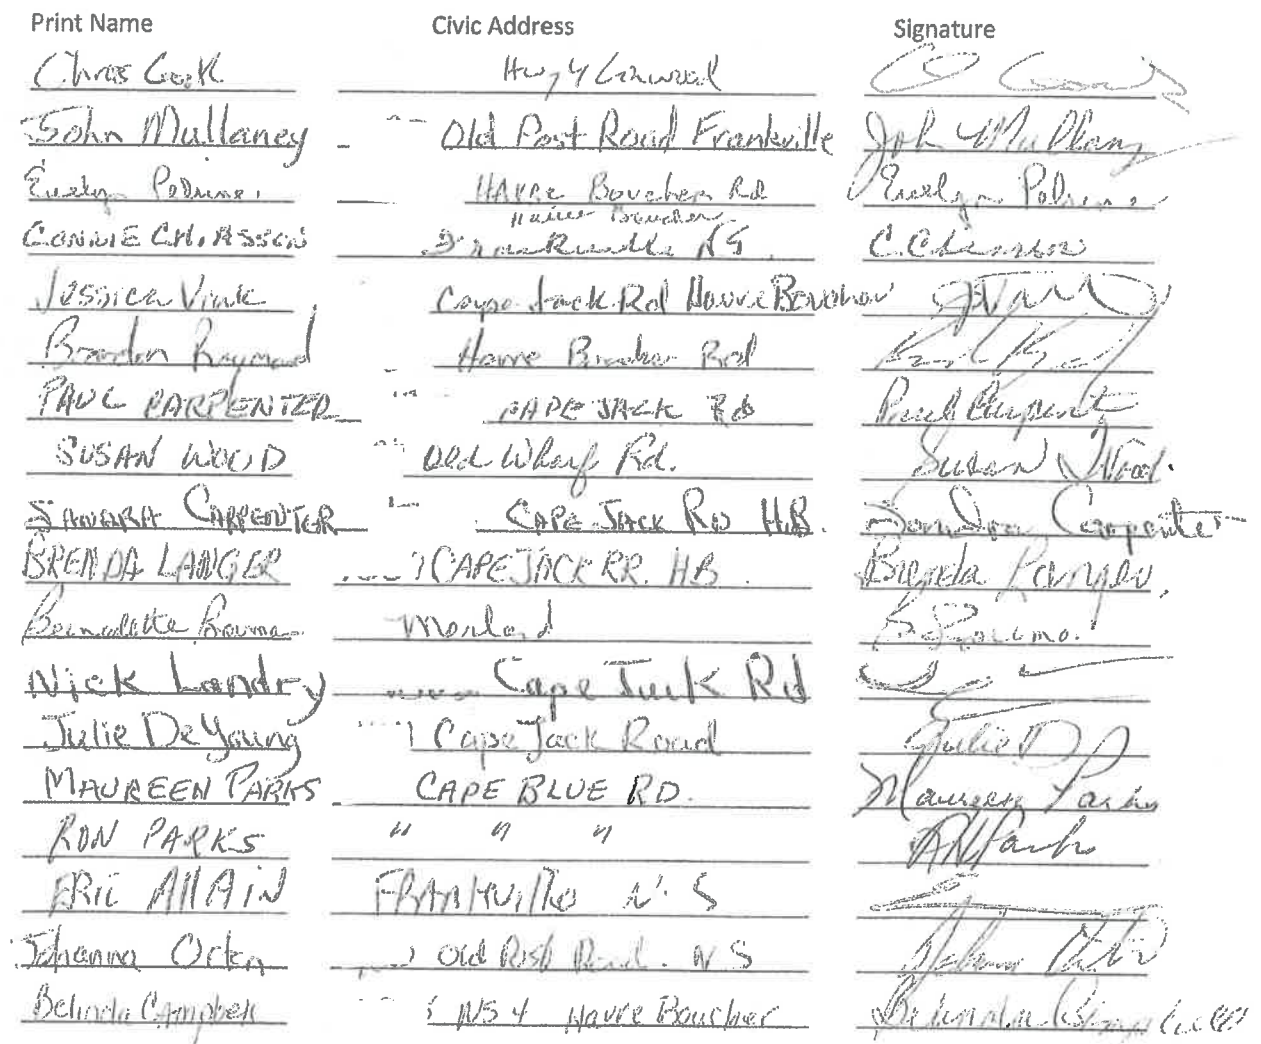 Print Name Civic Address Signature
Chris Cook Hwy 4 Linwood C Cook
John Mullaney Old Post Road Frankville John Mullaney
Evelyn Pelrine Havre Boucher Rd Evelyn Pelrine
Havre Boucher
CONNIE CHIASSON Frankville NS C. Chiasson
Jessica Vink Cape Jack Rd Havre Boucher
Brandon Raymond Havre Boucher Rd
PAUL CARPENTER CAPE JACK Rd Paul Carpenter
SUSAN WOOD Old Wharf Rd. Susan Wood
SANDRA CARPENTER CAPE JACK RD H.B. Sandra Carpenter
BRENDA LANGER CAPE JACK RR. HB. Brenda Langer
Bernadette Monland
Nick Landry Cape Jack Rd
Julie DeYoung Cape Jack Road Julie D
MAUREEN PARKS CAPE BLUE RD. Maureen Parks
RON PARKS " " " R Parks
ERIC AllAiN FRANkvillE N.S
Johanna Orten Old Post Road. NS
Belinda Campbell NS 4 Havre Boucher Belinda Campbell